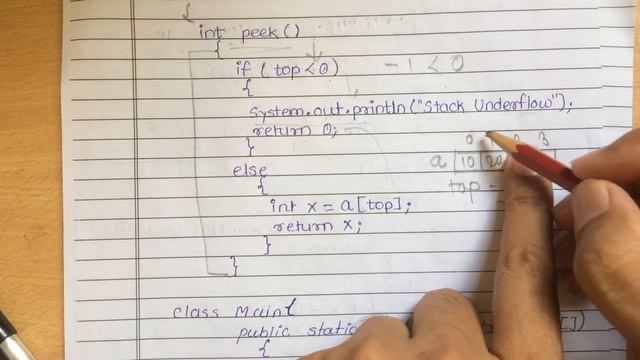 {
int peek()
{
if (top<0) -1 < 0
{
System.out.println("Stack Underflow");
return 0; 0 3
} a 10 20
else top =
{
int x = a[top];
return x;
}
}
class Main{
public static ])
{